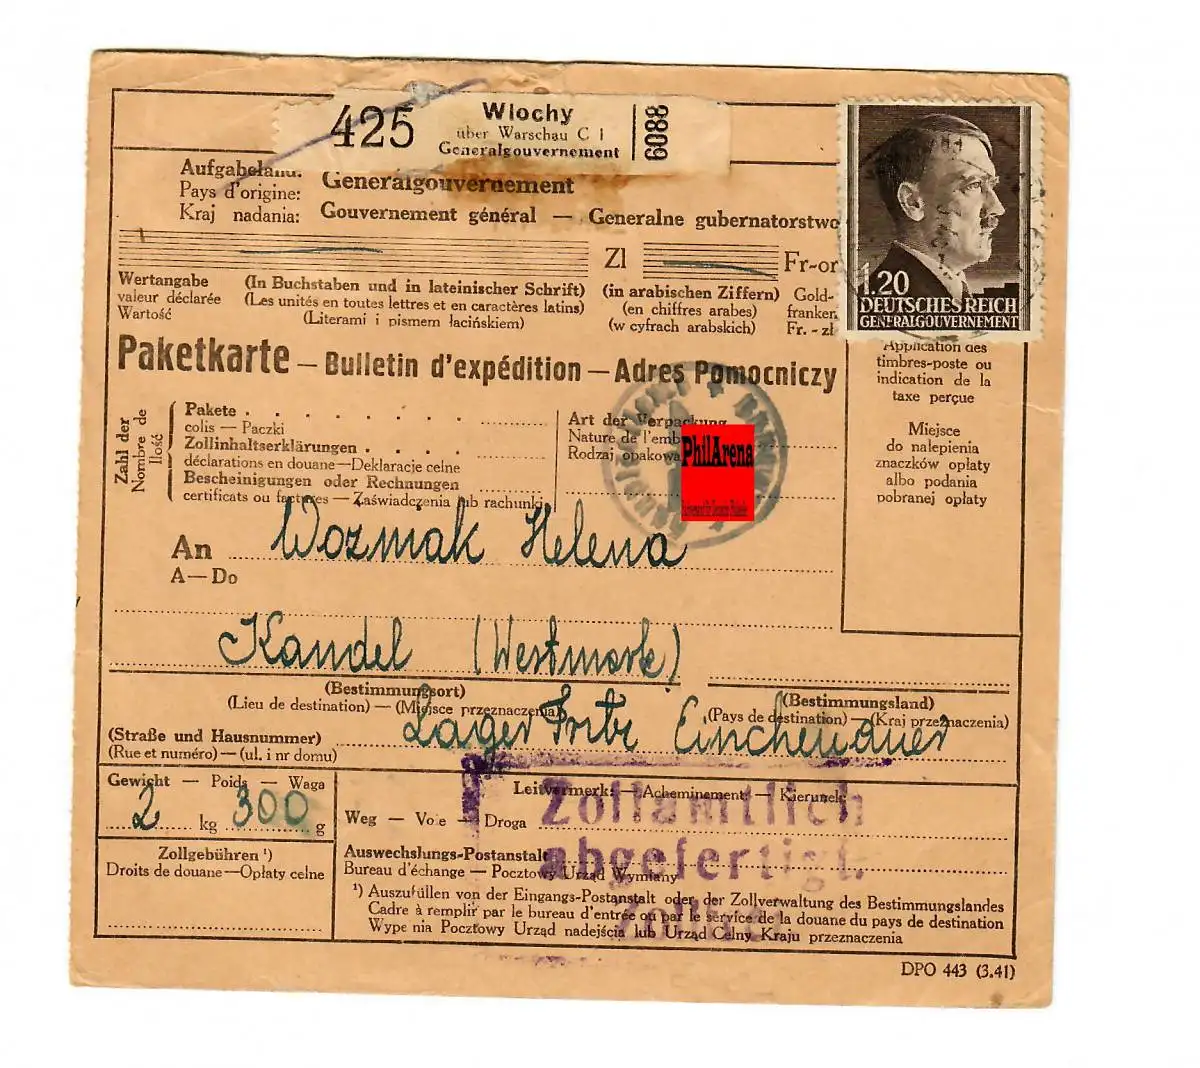 425
Wlochy
über Warschau C 1
Generalgouvernement
6088
Aufgabeland:
Pays d'origine:
Kraj nadania:
Generalgouvernement
Gouvernement général — Generalne gubernatorstwo
Zl
Fr-or
1.20
DEUTSCHES REICH
GENERALGOUVERNEMENT
Wertangabe
valeur déclarée
Wartość
(In Buchstaben und in lateinischer Schrift)
(Les unités en toutes lettres et en caractères latins)
(Literami i pismem łacińskiem)
(in arabischen Ziffern)
(en chiffres arabes)
(w cyfrach arabskich)
Gold-
franken
Fr. - zł
Paketkarte — Bulletin d'expédition — Adres Pomocniczy
Application des
timbres-poste ou
indication de la
taxe perçue
Miejsce
do nalepienia
znaczków opłaty
albo podania
pobranej opłaty
Zahl der
Nombre de
Ilość
Pakete
colis — Paczki
Zollinhaltserklärungen
déclarations en douane—Deklaracje celne
Bescheinigungen oder Rechnungen
certificats ou factures — Zaświadczenia lub rachunki
Art der Verpackung
Nature de l'emb
Rodzaj opakowa
PhilArena
An
A—Do
Wozmiak Helena
Kandel (Westmark)
(Bestimmungsort)
(Lieu de destination) — (Miejsce przeznaczenia)
(Bestimmungsland)
(Pays de destination) — (Kraj przeznaczenia)
(Straße und Hausnummer)
(Rue et numéro) — (ul. i nr domu)
Lager
Gewicht — Poids — Waga
2 kg 300 g
Leitvermerk — Acheminement — Kierunek
Weg — Voie — Droga
Zollamtlich
abgefertigt.
Zollgebühren ¹)
Droits de douane—Opłaty celne
Auswechslungs-Postanstalt
Bureau d'échange — Pocztowy Urząd Wymiany
¹) Auszufüllen von der Eingangs-Postanstalt oder der Zollverwaltung des Bestimmungslandes
Cadre à remplir par le bureau d'entrée ou par le service de la douane du pays de destination
Wype nia Pocztowy Urząd nadejścia lub Urząd Celny Kraju przeznaczenia
DPO 443 (3.41)